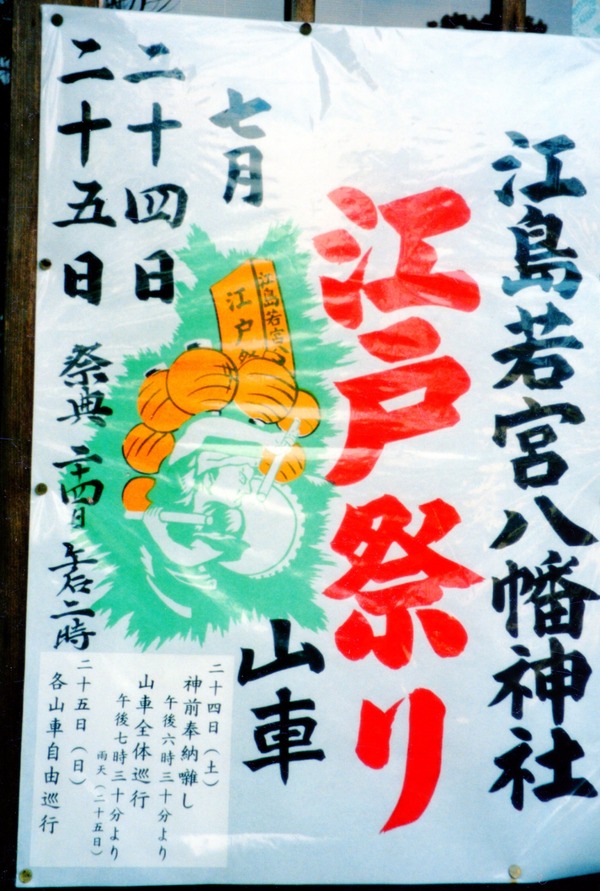 江島若宮八幡神社
江戸祭り
山車
七月
二十四日
二十五日
祭典 二十四日 午后二時
江島若宮
江戸祭
二十四日（土）
神前奉納囃し
午後六時三十分より
山車全体巡行
午後七時三十分より
雨天（二十五日）
二十五日（日）
各山車自由巡行